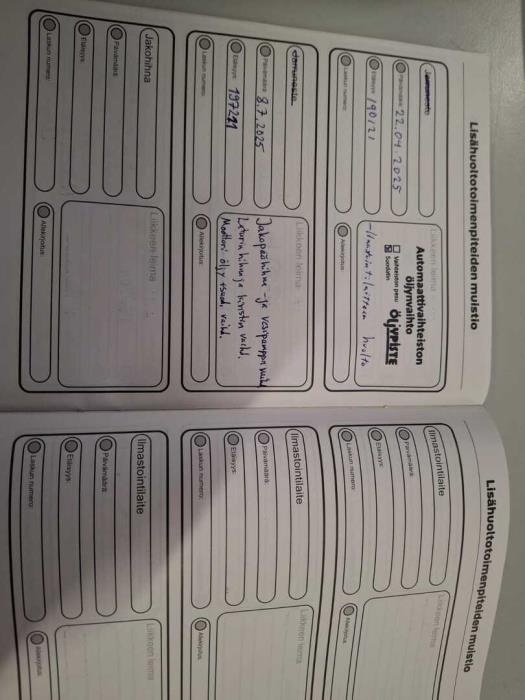 Lisähuoltotoimenpiteiden muistio
Jarruneste
Päivämäärä: 22.04.2025
Etäisyys: 190121
Laskun numero:
Liikkeen leima
Automaattivaihteiston
öljynvaihto
Vaihteiston pesu
Suodatin
ÖLJYPISTE
-Ilmastointilaitteen huolto
Allekirjoitus:
Jarruneste
Päivämäärä: 8.7.2025
Etäisyys: 197211
Laskun numero:
Liikkeen leima
Jakopäähihna ja vesipumppu vaihd.
Laturin hihna ja kiristin vaihd.
Moottori öljy + suod. vaihd.
Allekirjoitus:
Jakohihna
Päivämäärä:
Etäisyys:
Laskun numero:
Liikkeen leima
Allekirjoitus:
Lisähuoltotoimenpiteiden muistio
Ilmastointilaite
Päivämäärä:
Etäisyys:
Laskun numero:
Liikkeen leima
Allekirjoitus:
Ilmastointilaite
Päivämäärä:
Etäisyys:
Laskun numero:
Liikkeen leima
Allekirjoitus:
Ilmastointilaite
Päivämäärä:
Etäisyys:
Laskun numero:
Liikkeen leima
Allekirjoitus: